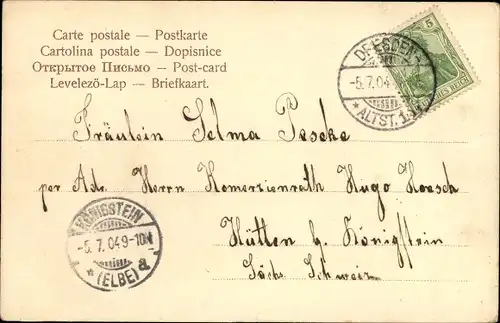 Carte postale — Postkarte
Cartolina postale — Dopisnice
Открытое Письмо — Post-card
Levelező-Lap — Briefkaart.
DRESDEN-
-5.7.04
* ALTST. 1
5
Fräulein Selma Peschke
per Adr. Herrn Komerzienrath Hugo Hoesch
KÖNIGSTEIN
-5.7.04 9-10V.
* (ELBE) a.
Hütten b. Königstein
Sächs. Schweiz